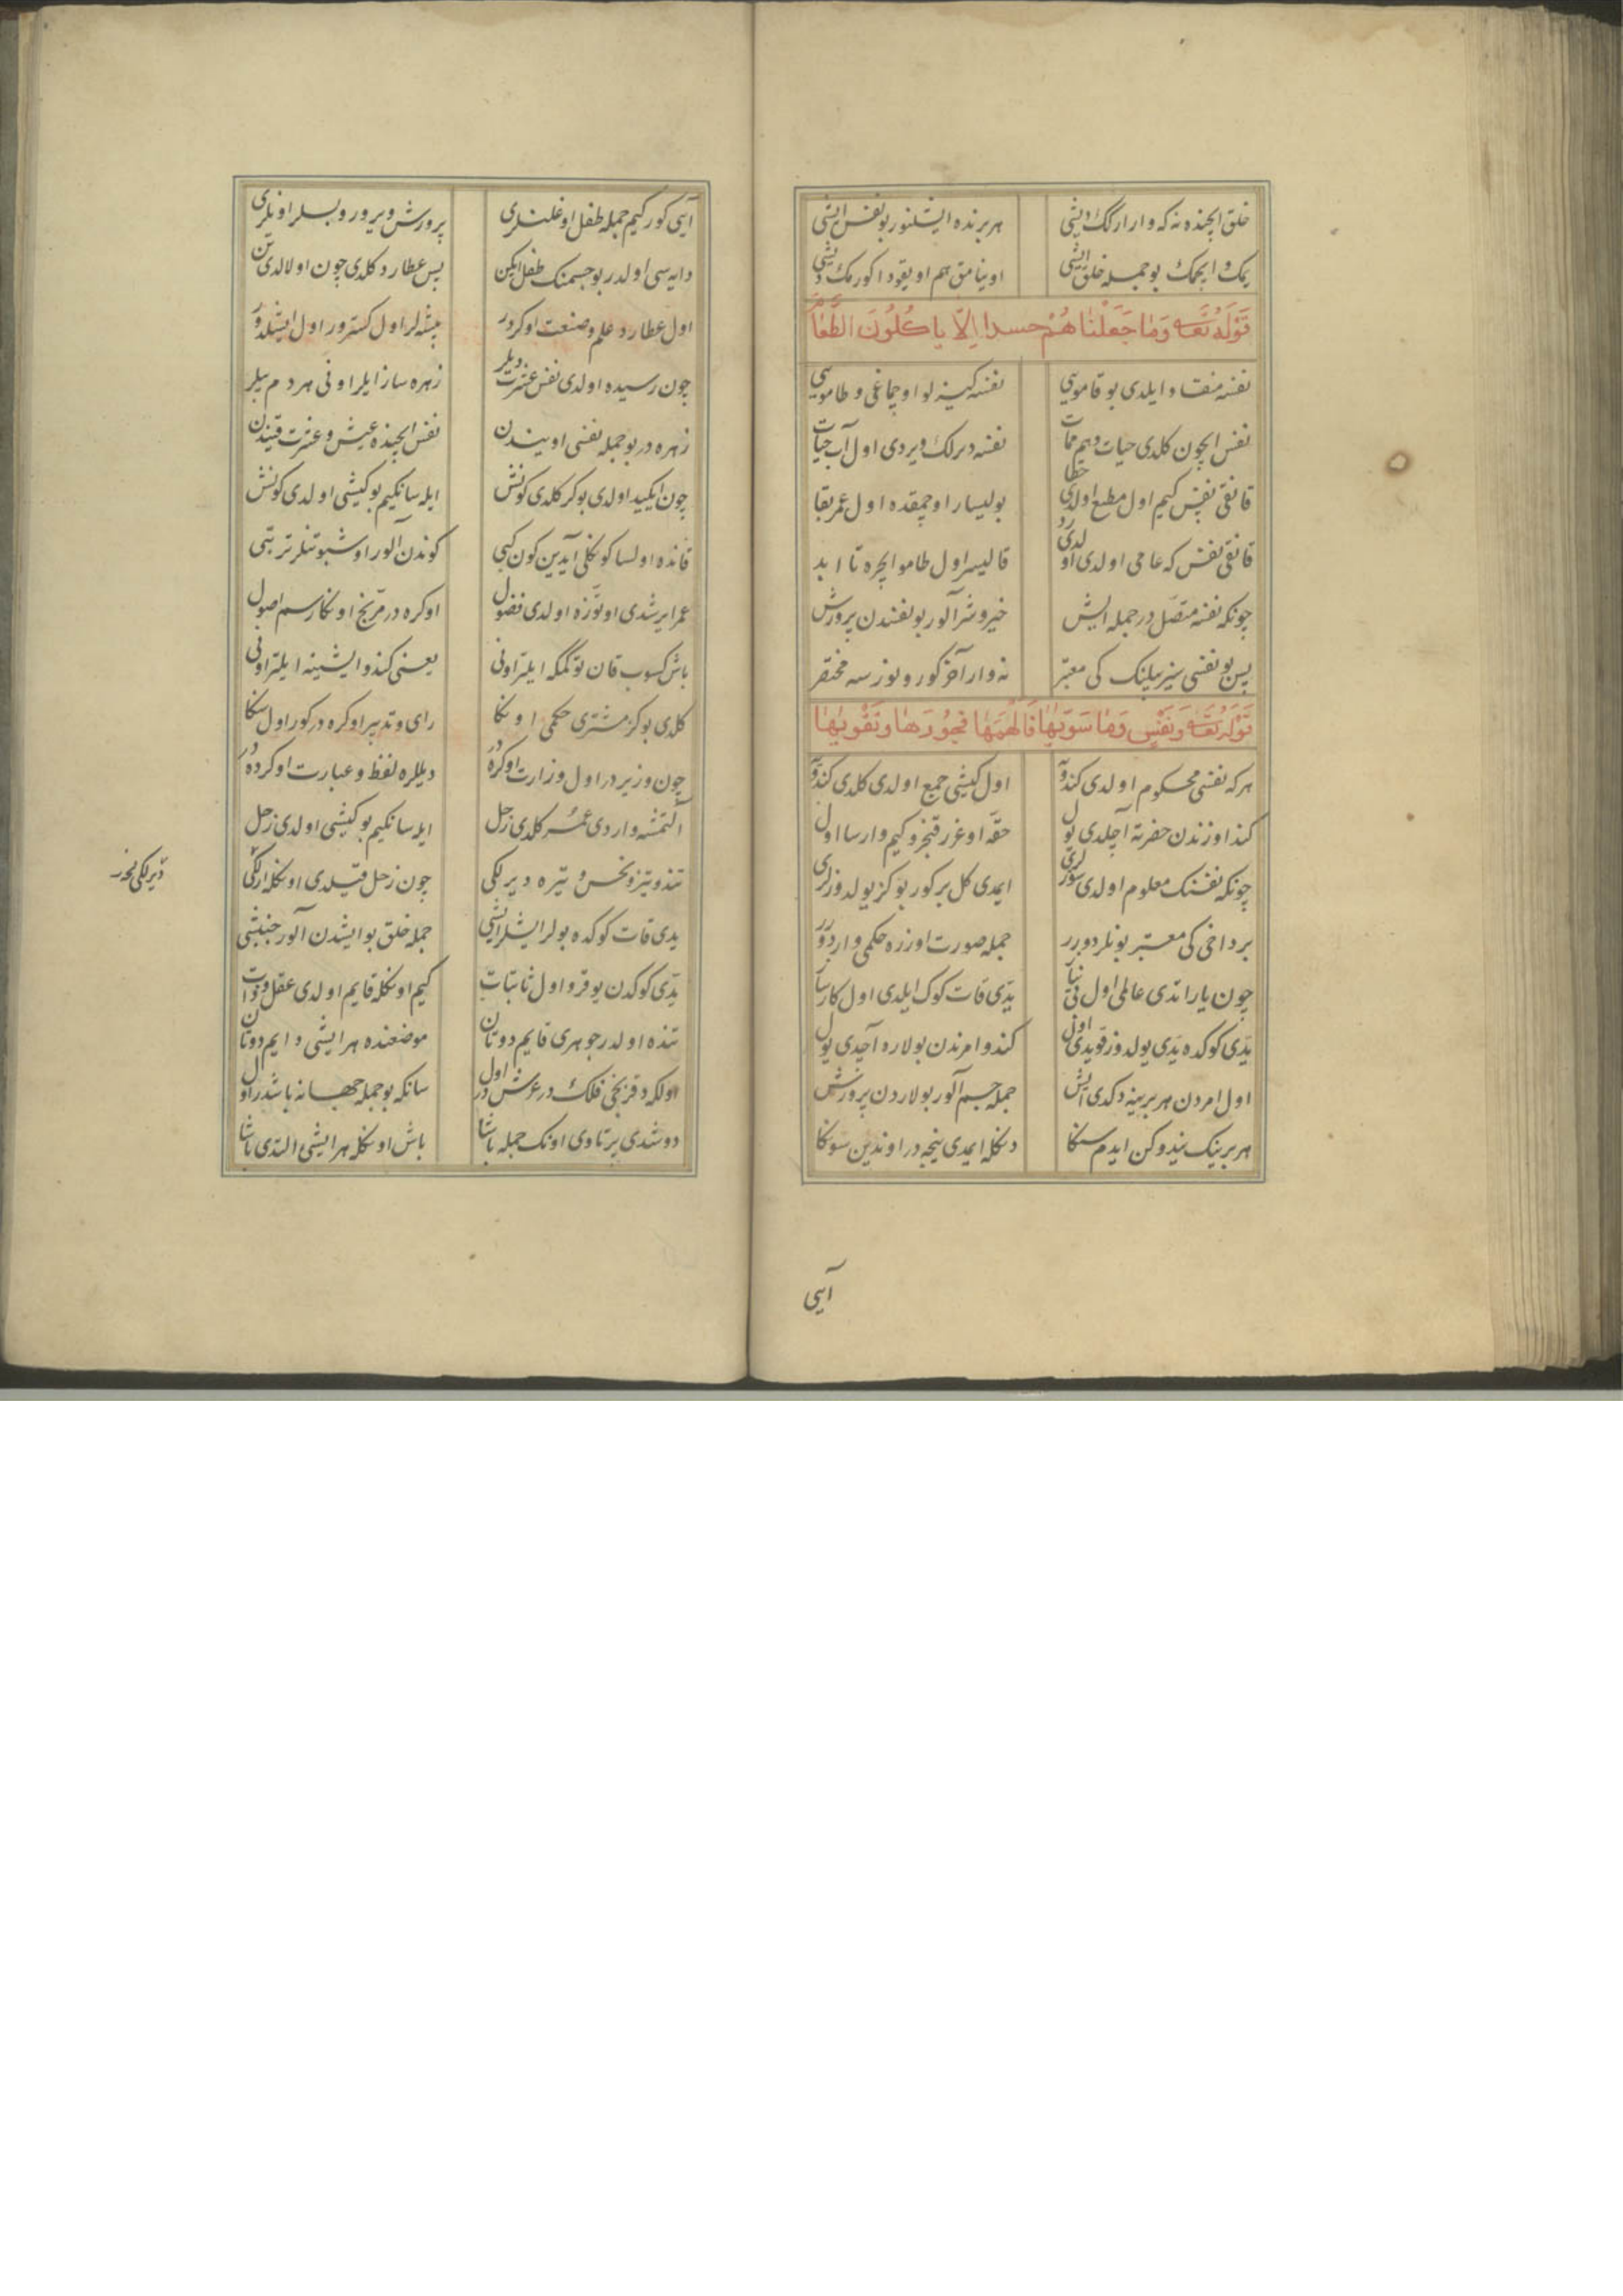 خلق ایچنده نه که وار ارکک دیشی هر برنده ایشلنور بو نفس ایشی
یمک و ایچمک بو جمله خلق ایشی اوینامق هم اویقودا کورمک دیشی
قوله تعه وما جعلناهم حسدا الا یاکلون الطعام
نفسه منقاد ایلدی بو قاموسی نفسه کیزلو اوچماغی و طاموسی
نفس ایچون کلدی حیات و هم ممات نفسه دیرلک ویردی اول آب حیات
قانقی نفس کیم اول مطیع اولدی خطا بولیسار اوچمقده اول عمر بقا
قانقی نفس که عاصی اولدی اولدی رد قالیسر اول طامو ایچره تا ابد
چونکه نفسه متصل در جمله ایش خیر و شر آلور بو نفسدن پرورش
پس بو نفسی سیز بیلینک کی معتبر نه وار آخر کورونور سه مختصر
قوله تعه ونفس وما سویها فالهمها فجورها وتقویها
هر که نفسی محکوم اولدی کندو اول کیشی جمع اولدی کلدی کندو
کند اوزندن حضرته آچلدی یول حقه اوغرر قنجرو کیم وارسا اول
چونکه نفسنک معلوم اولدی سوزلری ایمدی کل بر کور بو کز یولدوزلری
بر داخی کی معتبر بونلر دورر جمله صورت اوزره حکمی وار دورر
چون یاراتدی عالمی اول بی نیا یدی قات کوک ایلدی اول کارسا
یدی کوکده یدی یولدوز قویدی اول کندو امرندن بولاره آچدی یول
اول امردن هر برینه دکدی ایش جمله جسم آلور بولاردن پرورش
هر برینک نیدوکن ایدم سکا دکله ایمدی نیجه در اوندین سوکا
آیی
آیی کور کیم جمله طفل اوغلنلری پرورش ویرور و بسلر اویلری
دایه سی اولدر بو جسمنک طفل ایکن پس عطارد کلدی چون اولالدی تن
اول عطارد علم و صنعت اوکردر پیشه لر اول کسترور اول ایشلدور
چون رسیده اولدی نفس عشرت دیلر زهره ساز ایلر اونی هر دم بیلر
زهره در بو جمله نفسی اویندن نفس ایچنده عیش و عشرت قیندن
چون ایکید اولدی بو کر کلدی کونش ایله سانکیم بو کیشی اولدی کونش
قانده اولسا کوکلی آیدین کون کبی کوندن آلور اوشبو تنلر تربتی
عمر ایرشدی اوتوزه اولدی فضول اوکره در مریخ اوکا رسم اصول
باش کسوب قان توکمکه ایلتر اونی یعنی کندو ایشینه ایلتر اونی
کلدی بو کز مشتری حکمی اوکا رای و تدبیر اوکره در کور اول سکا
چون وزیر در اول وزارت اوکره در دیللره لفظ و عبارت اوکرده در
آلتمشه واردی عمر کلدی زحل ایله سانکیم بو کیشی اولدی زحل
تند و تیز و نحس و تیره دیرلکی چون زحل قیلدی اونکله ارلکی
یدی قات کوکده بولر ایشلر ایشی جمله خلق بو ایشدن آلور جنبشی
یدی کوکدن یوقرو اول ثابتات کیم اونکله قایم اولدی عقل و ذات
تنده اولدر جوهری قایم دوتان موضعنده هر ایشی دایم دوتان
اولکه دقزنجی فلک در عرش در اول سانکه بو جمله جهانه باشدر اول
دوشدی پرتاوی اونک جمله باشا باش اونکله هر ایشی التدی باشا
دیرلکی